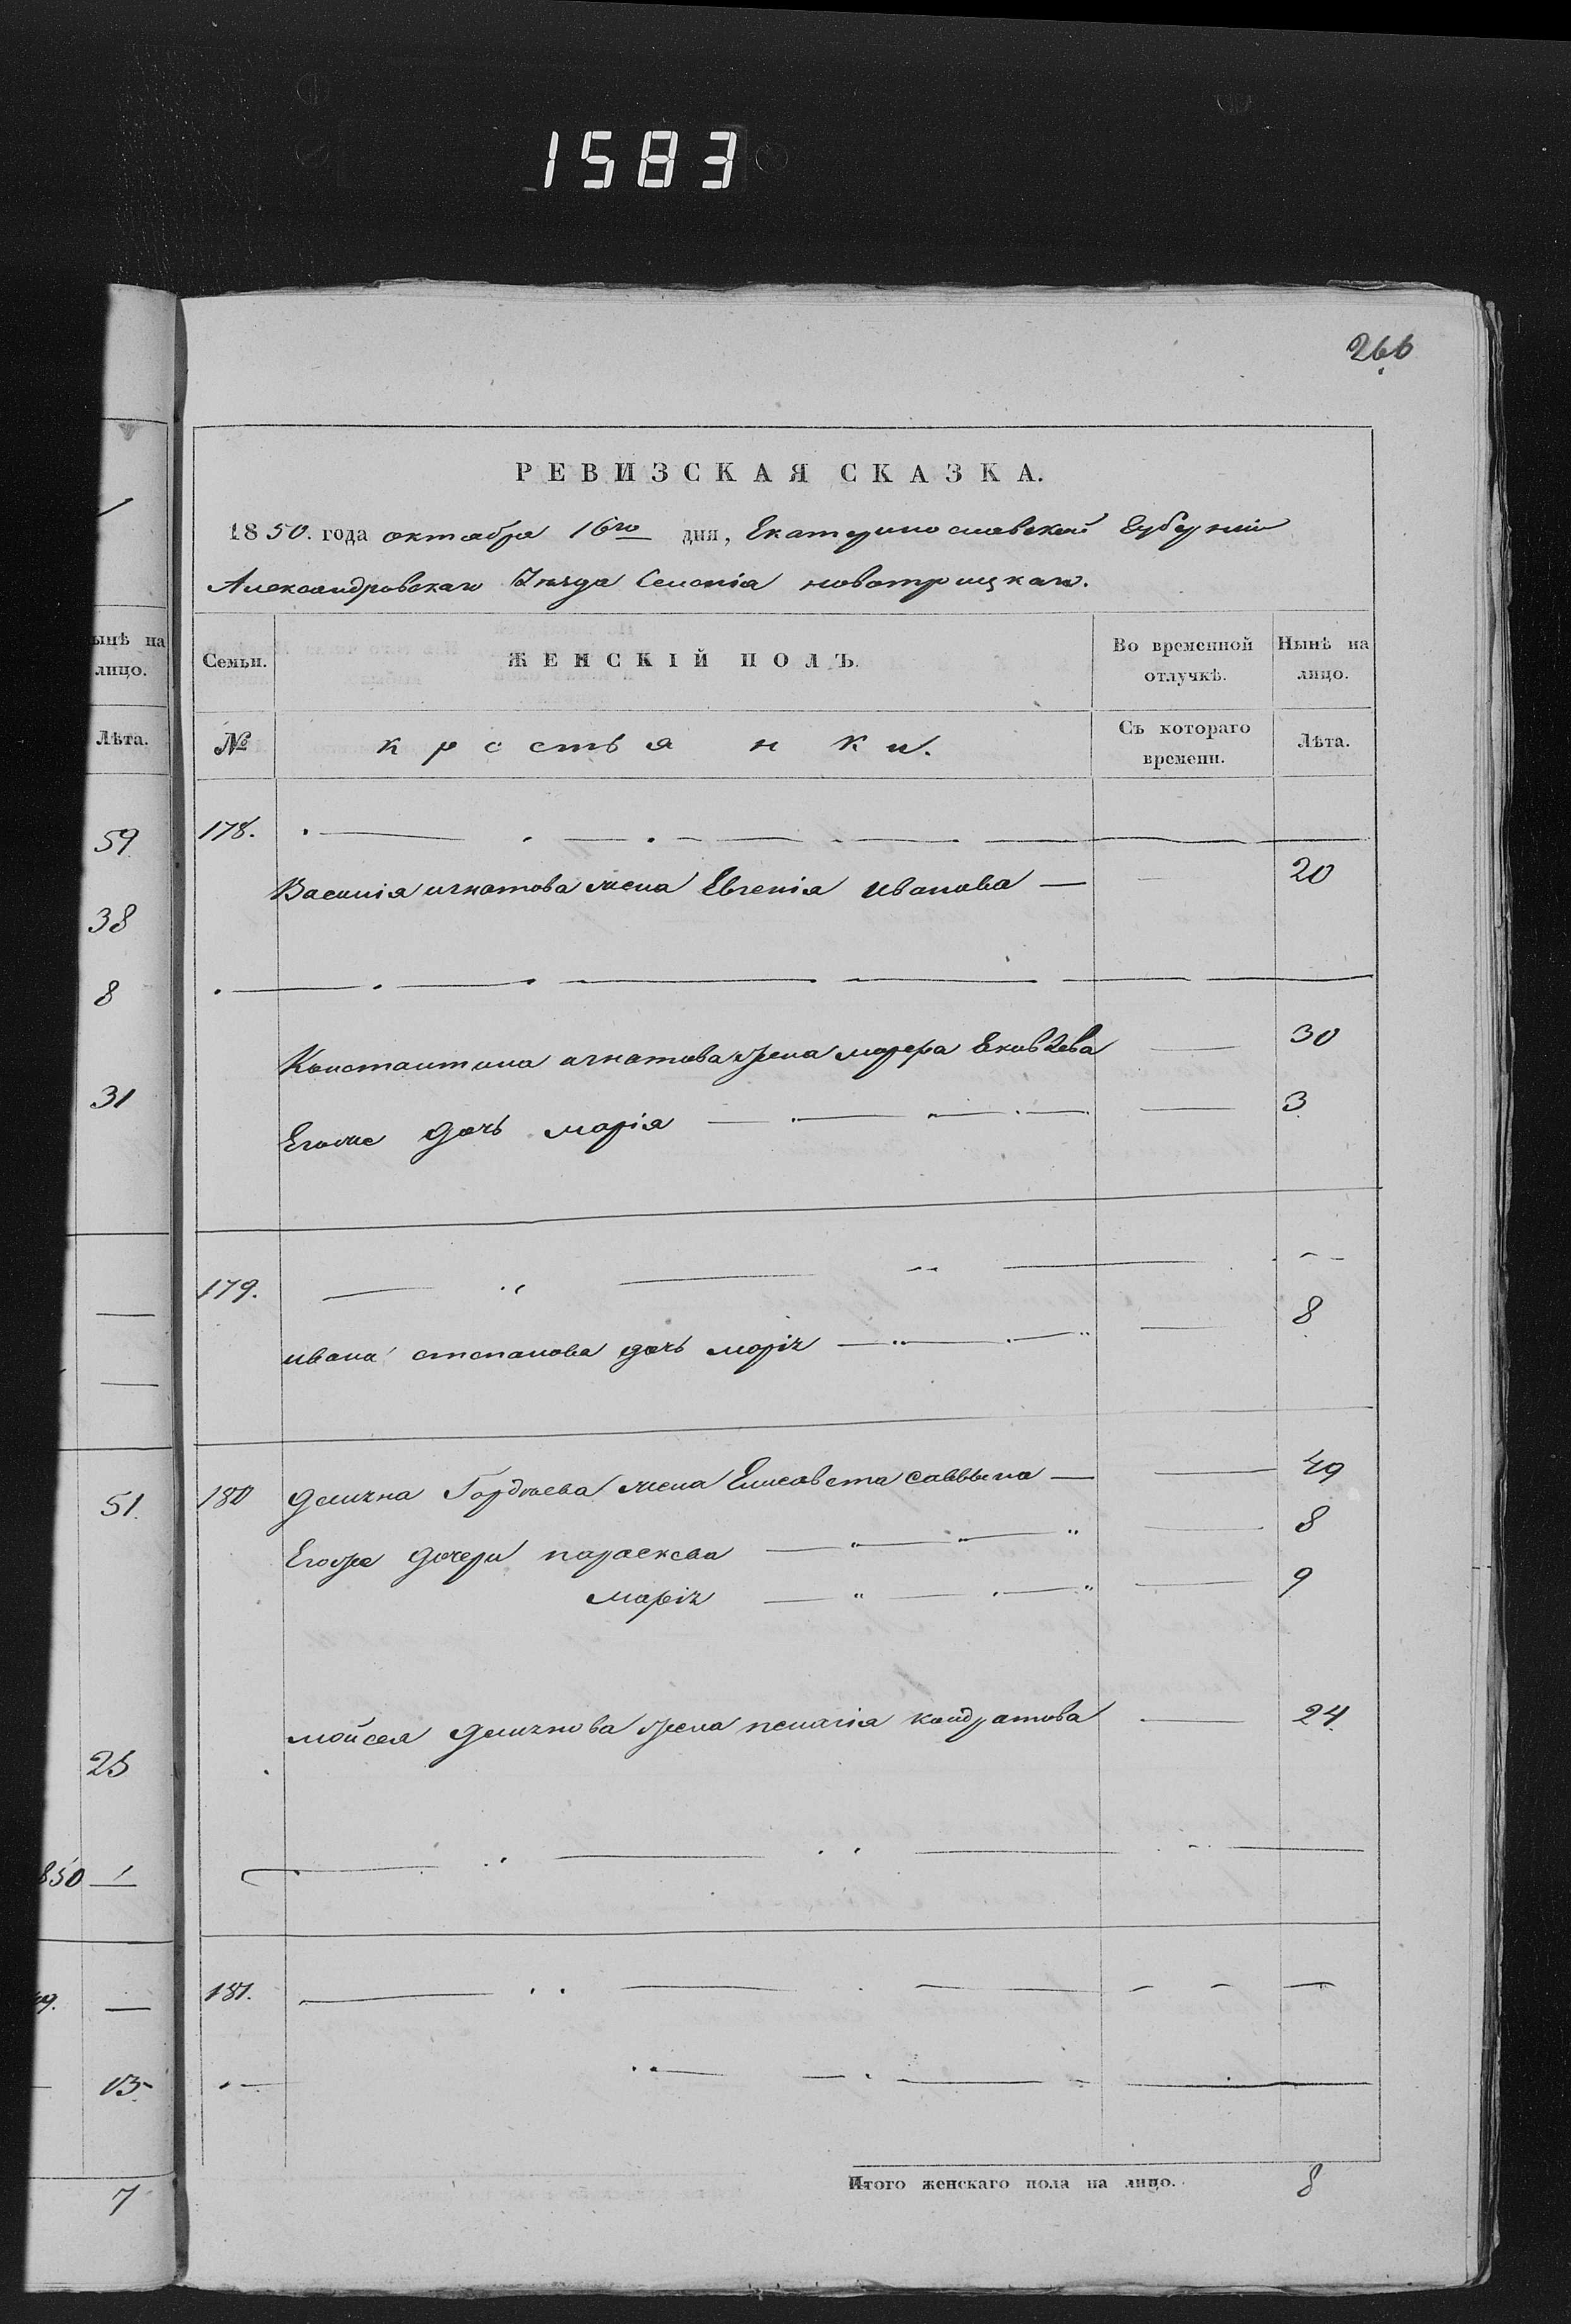 1583
266
РЕВИЗСКАЯ СКАЗКА.
1850. года октабра 16го дня, Екатериославской Губерніи
Александровскаго Уезда Селенія новотроицкаго.
ынѣ на лицо.
Семьи. ЖЕНСКІЙ ПОЛЪ. Во временной отлучкѣ. Нынѣ на лицо.
Лѣта.
№ крестьянки. Съ котораго времени. Лѣта.
59 178.
Василія игнатова жена Евгенія иванова — — 20
38
8
Константина игнатова жена марфа Яковлева — 30
31 Егоже дочь марія — — 3
179.
ивана степанова дочь марія — — 8
51. 180 Гордѣева жена Елисавета саввына — — 49
Егоже дочери параскева — — 8
марія — — 9
мойсея жена пелагія кондратова — 24
25
850 1
49. — 181.
13
Итого женскаго пола на лицо. 8
7